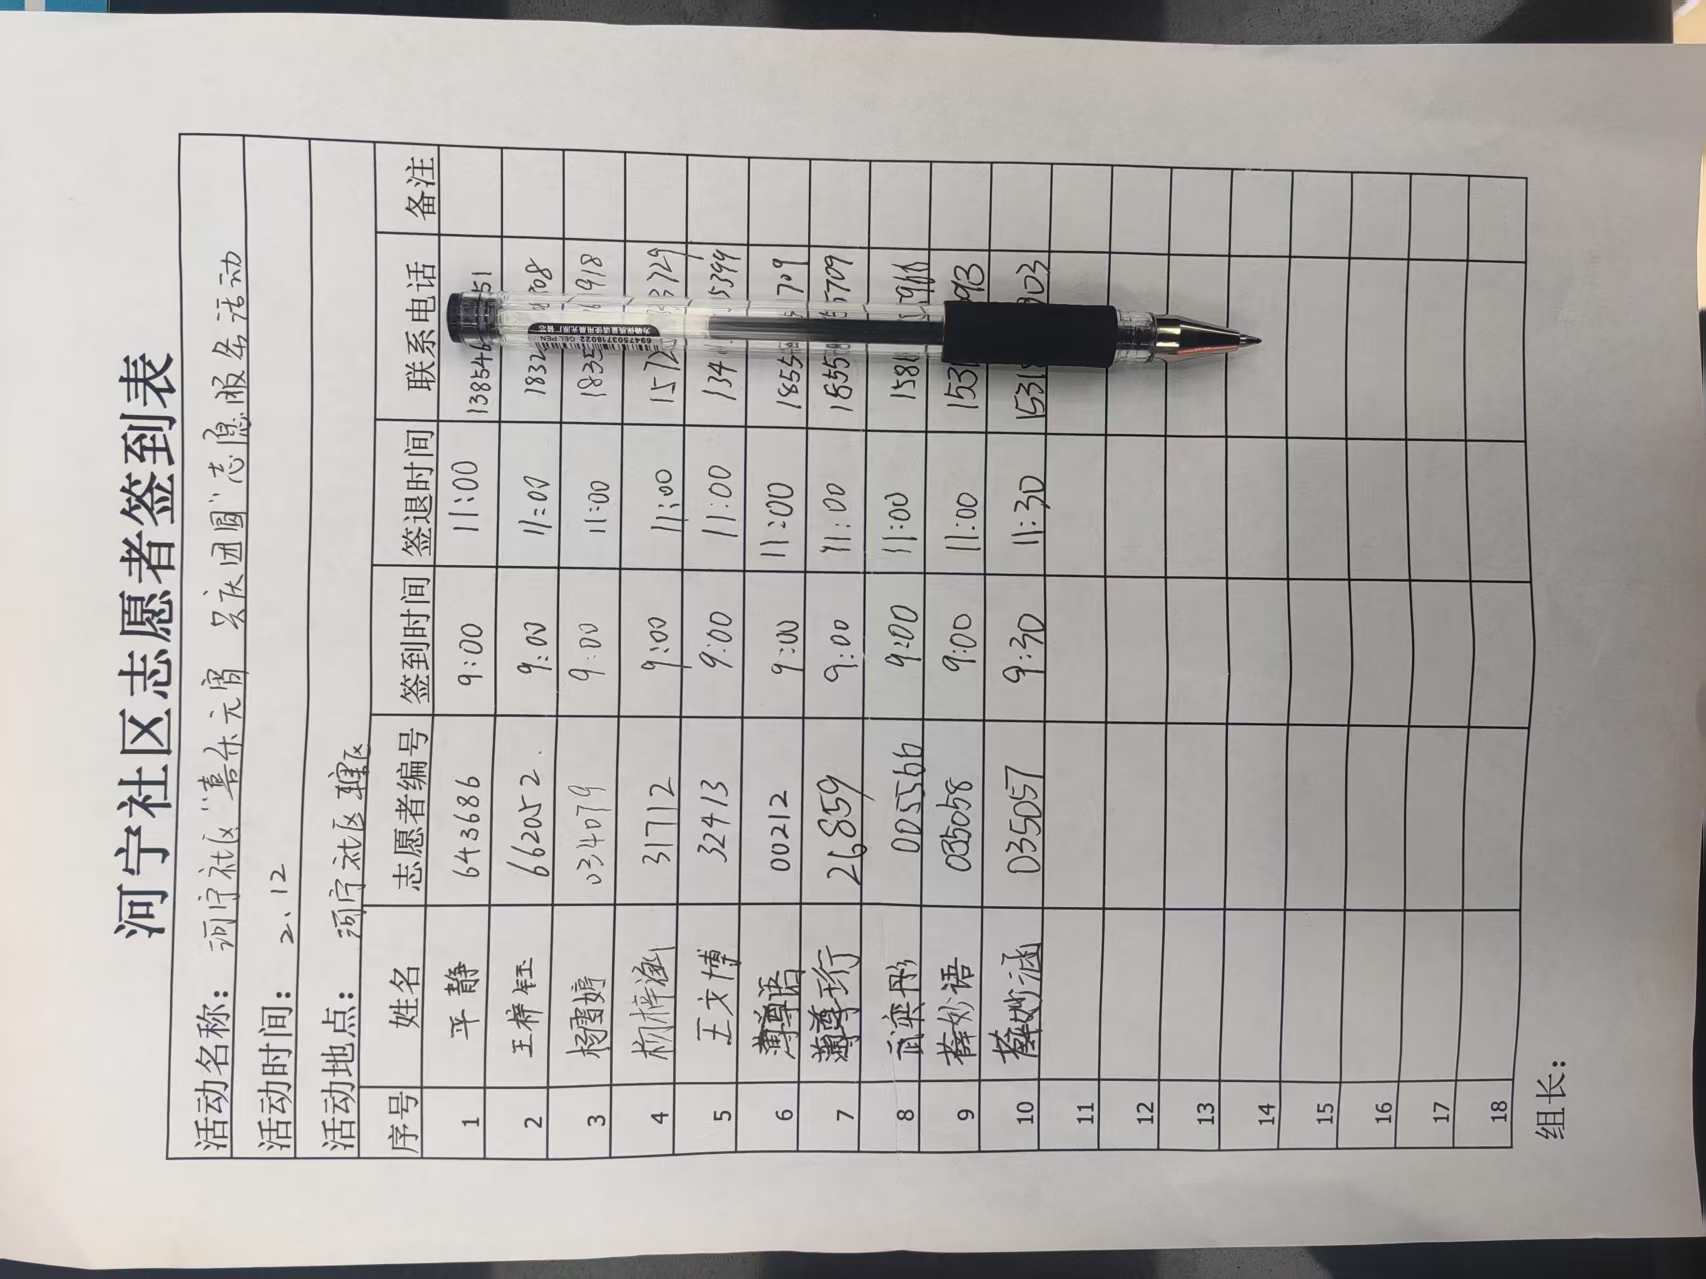 河宁社区志愿者签到表
活动名称：河宁社区“喜乐元宵 共庆团圆”志愿服务活动
活动时间：2.12
活动地点：河宁社区辖区
序号 姓名 志愿者编号 签到时间 签退时间 联系电话 备注
1 平静 643686 9:00 11:00 13854 51
2 王梓钰 662052 9:00 11:00 1832 708
3 杨雪婷 034079 9:00 11:00 1835 918
4 杨梓涵 31712 9:00 11:00 1572 3729
5 王文博 32413 9:00 11:00 134 5394
6 薄尊语 00212 9:00 11:00 1855 709
7 薄尊珩 26859 9:00 11:00 1855 5709
8 武奕彤 005566 9:00 11:00 158 966
9 薛妙语 035058 9:00 11:00 153 93
10 薛妙涵 035057 9:30 11:30 1531 03
11
12
13
14
15
16
17
18
组长：
6947503718022 GEL PEN